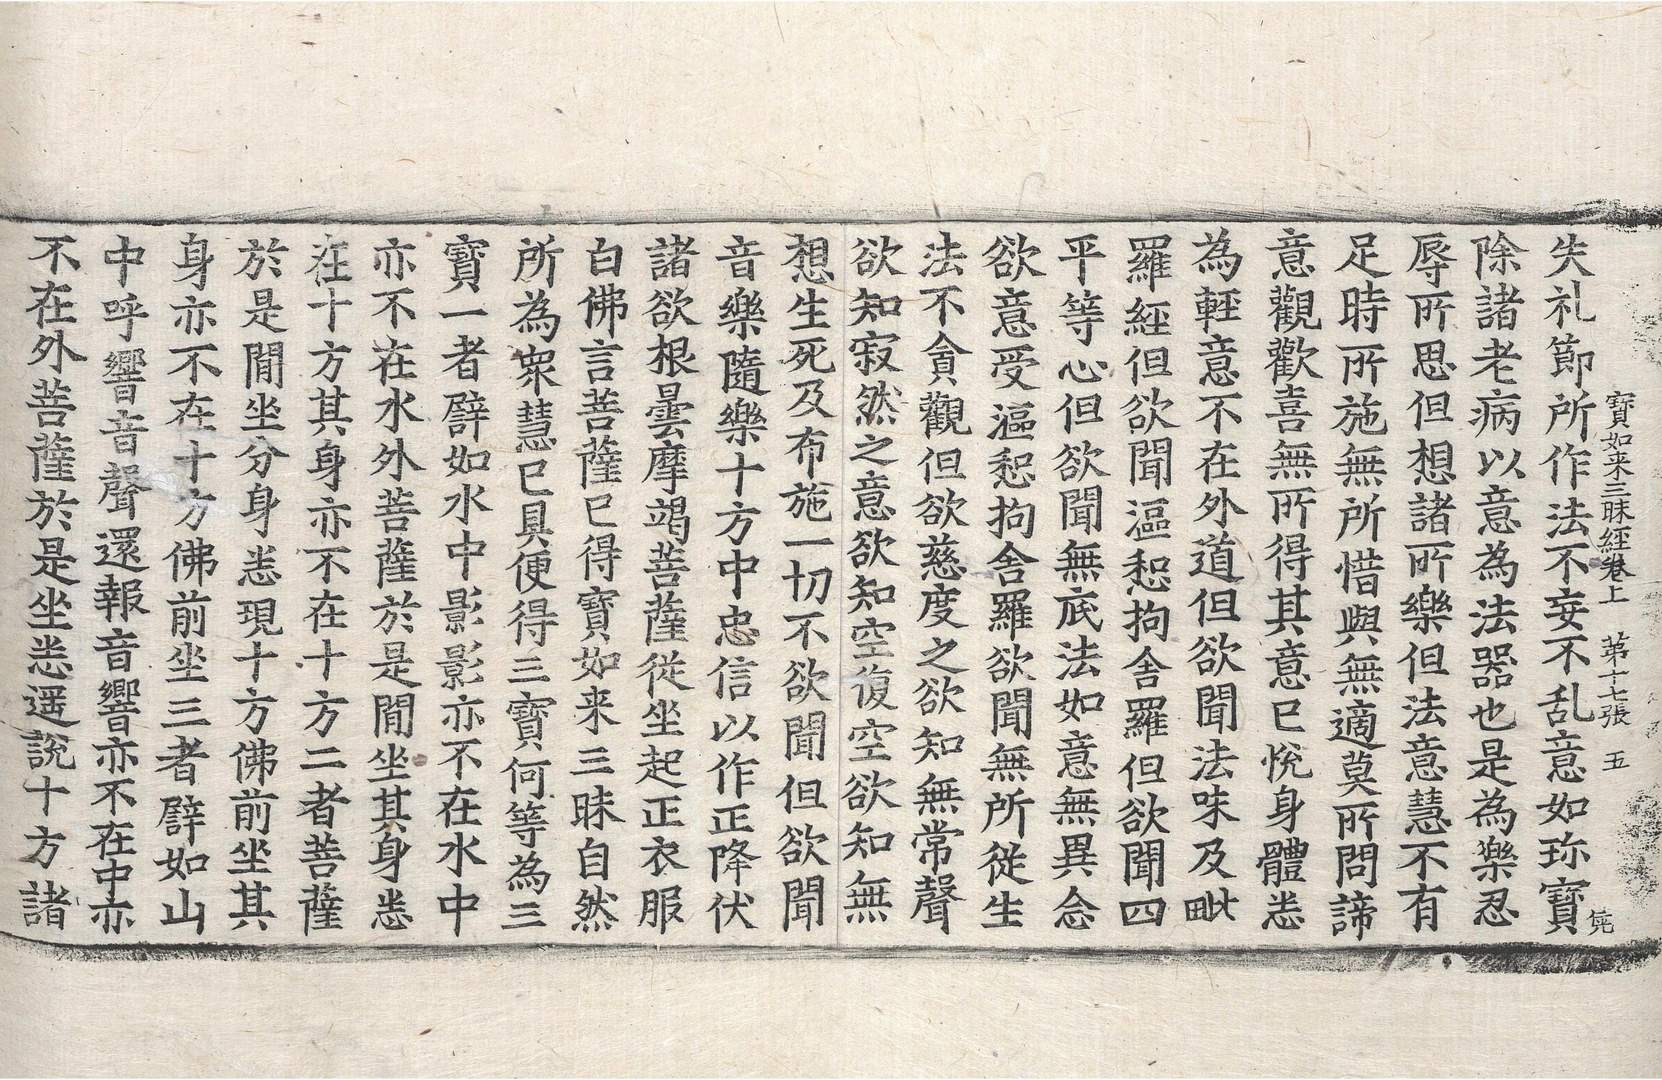 寶如来三昧經卷上 第十七張 五
失礼節所作法不妄不乱意如珎寶
除諸老病以意為法器也是為樂忍
辱所思但想諸所樂但法意慧不有
足時所施無所惜與無適莫所問諦
意觀歡喜無所得其意已悅身體悉
為輕意不在外道但欲聞法味及毗
羅經但欲聞漚惒拘舍羅但欲聞四
平等心但欲聞無底法如意無異念
欲意受漚惒拘舍羅欲聞無所從生
法不貪觀但欲慈度之欲知無常聲
欲知寂然之意欲知空復空欲知無
想生死及布施一切不欲聞但欲聞
音樂隨樂十方中忠信以作正降伏
諸欲根曇摩竭菩薩從坐起正衣服
白佛言菩薩已得寶如来三昧自然
所為衆慧已具便得三寶何等為三
寶一者譬如水中影影亦不在水中
亦不在水外菩薩於是間坐其身悉
在十方其身亦不在十方二者菩薩
於是間坐分身悉現十方佛前坐其
身亦不在十方佛前坐三者譬如山
中呼響音聲還報音響亦不在中亦
不在外菩薩於是坐悉遥說十方諸